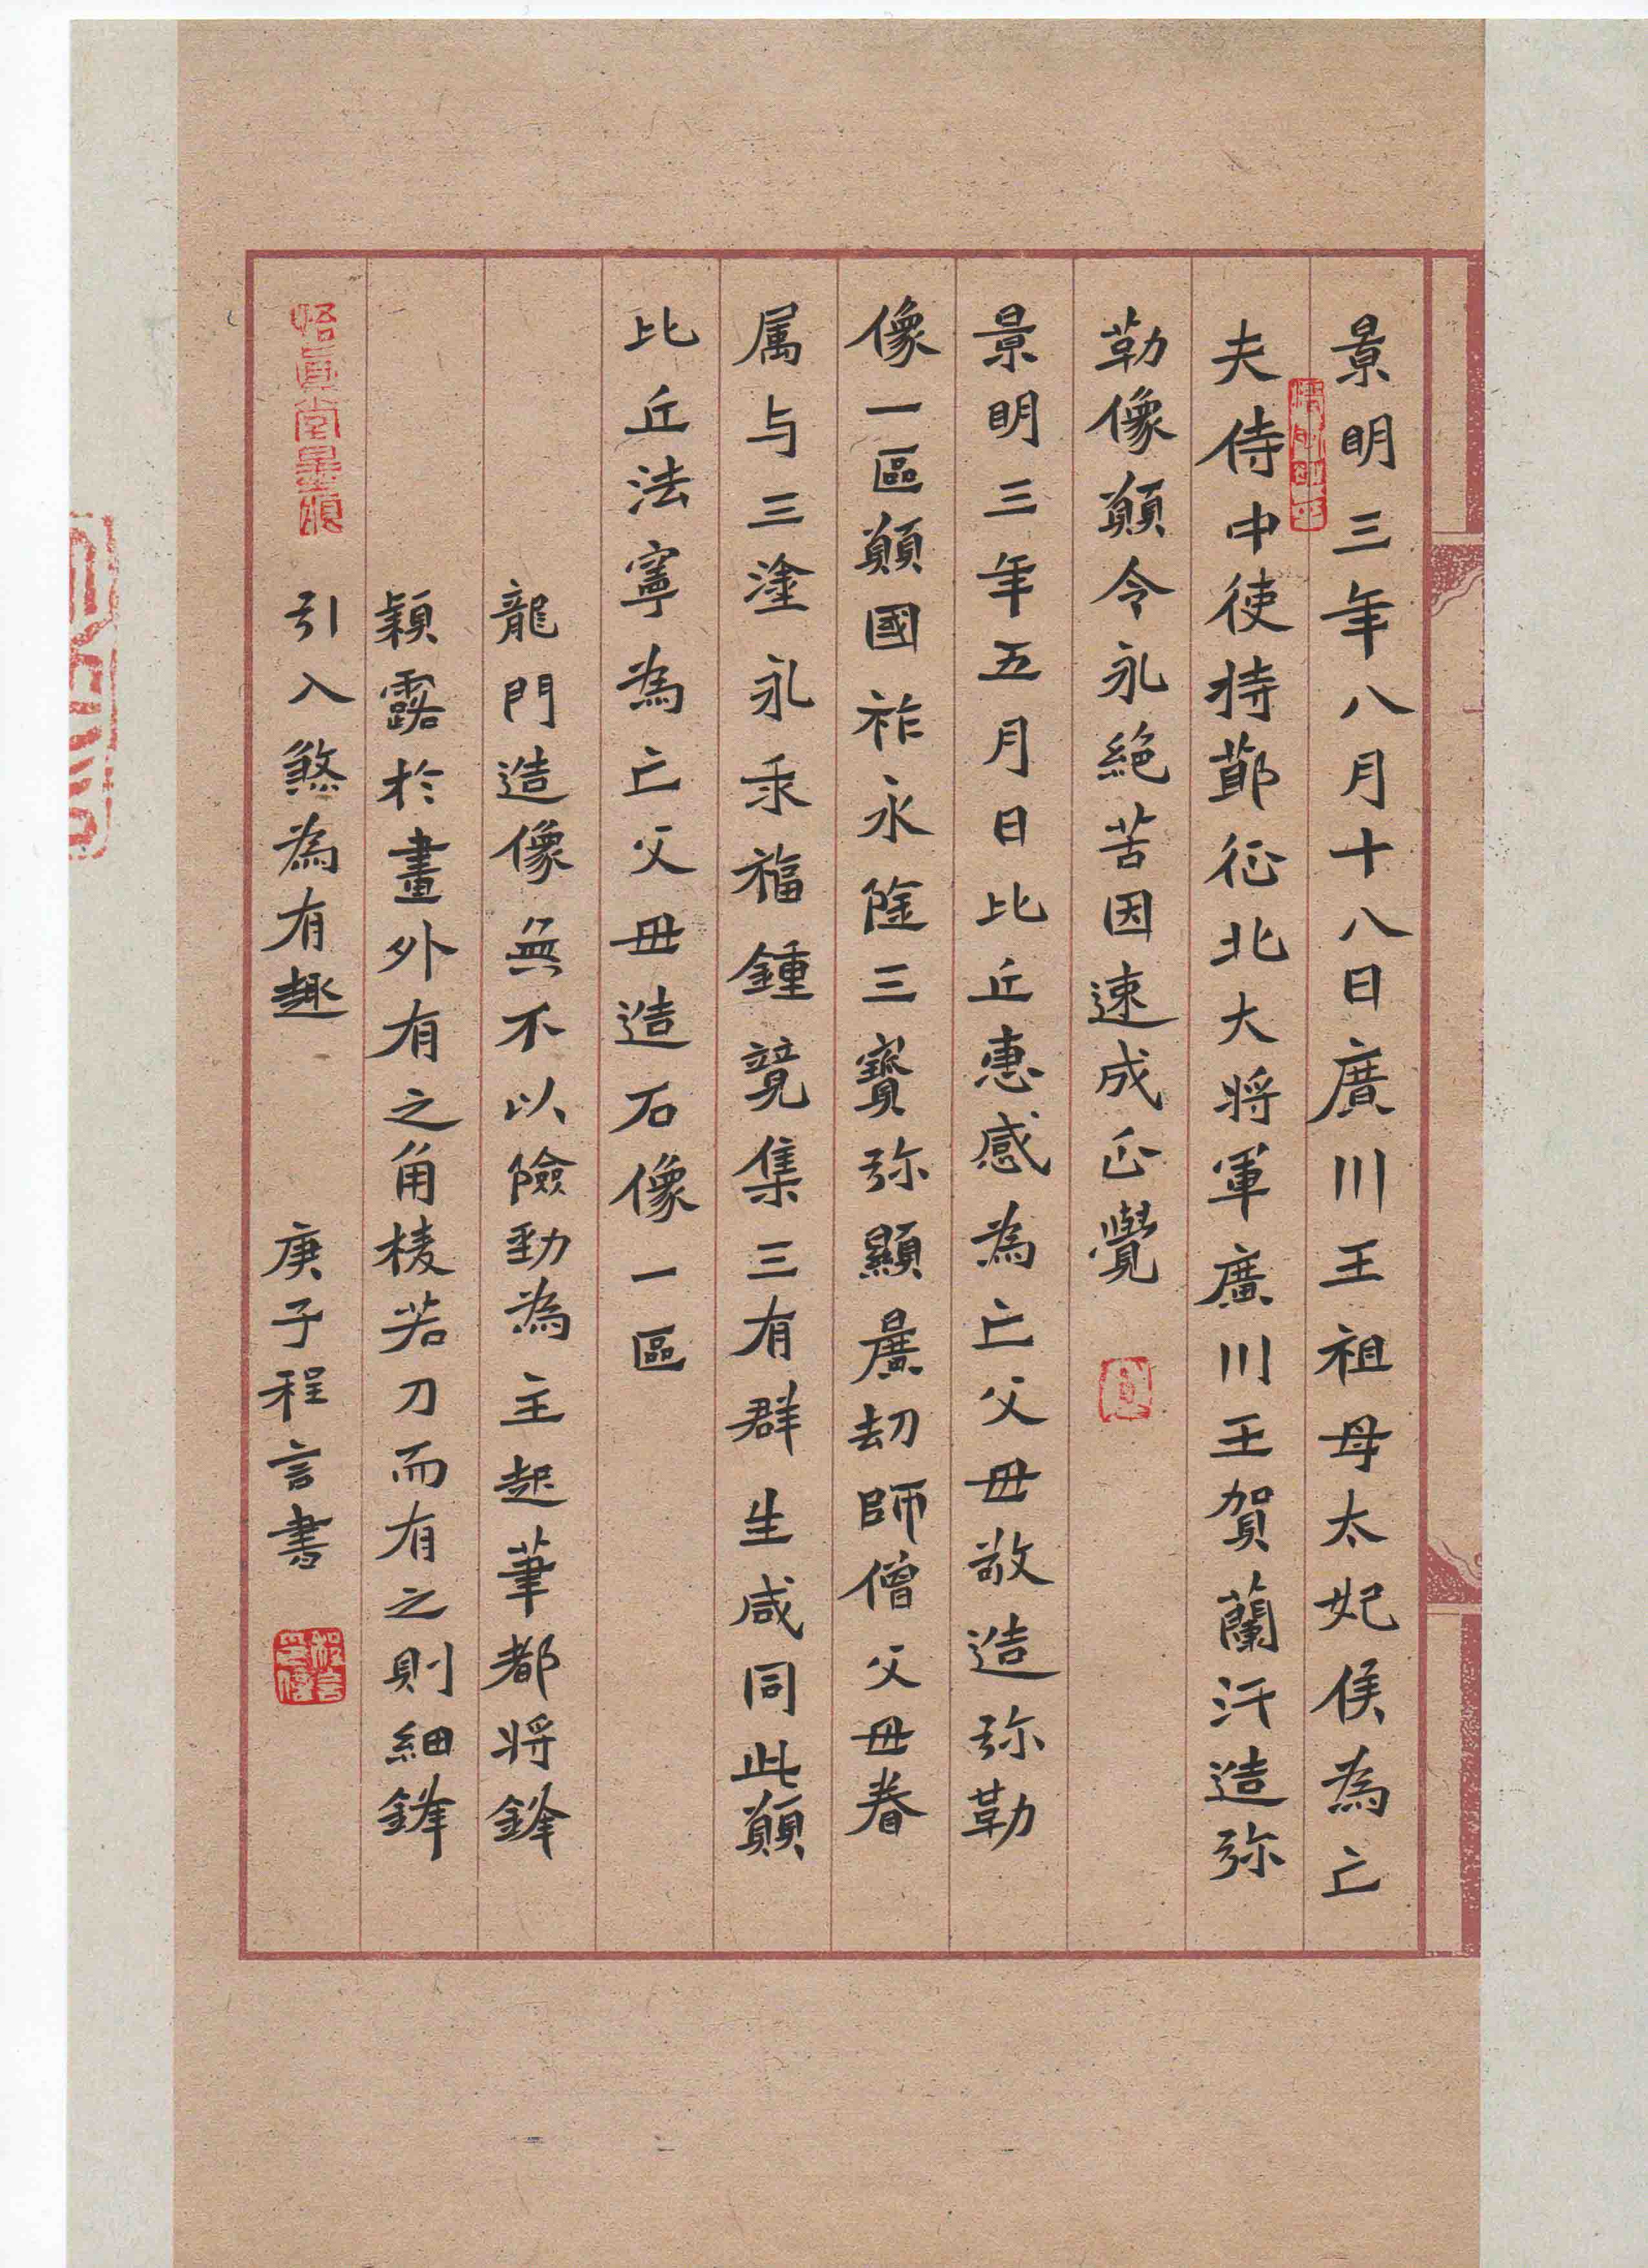 景明三年八月十八日廣川王祖母太妃侯為亡
夫侍中使持節征北大將軍廣川王賀蘭汗造弥
勒像願令永絕苦因速成正覺
景明三年五月日比丘惠感為亡父毋敬造弥勒
像一區願國祚永隆三寶弥顯曠劫師僧父毋眷
属与三塗永乖福鍾竟集三有群生咸同此願
比丘法寧為亡父毋造石像一區
龍門造像無不以險勁為主起筆都將鋒
穎露於畫外有之角棱若刀而有之則細鋒
引入煞為有趣 庚子程言書
悟真堂墨痕